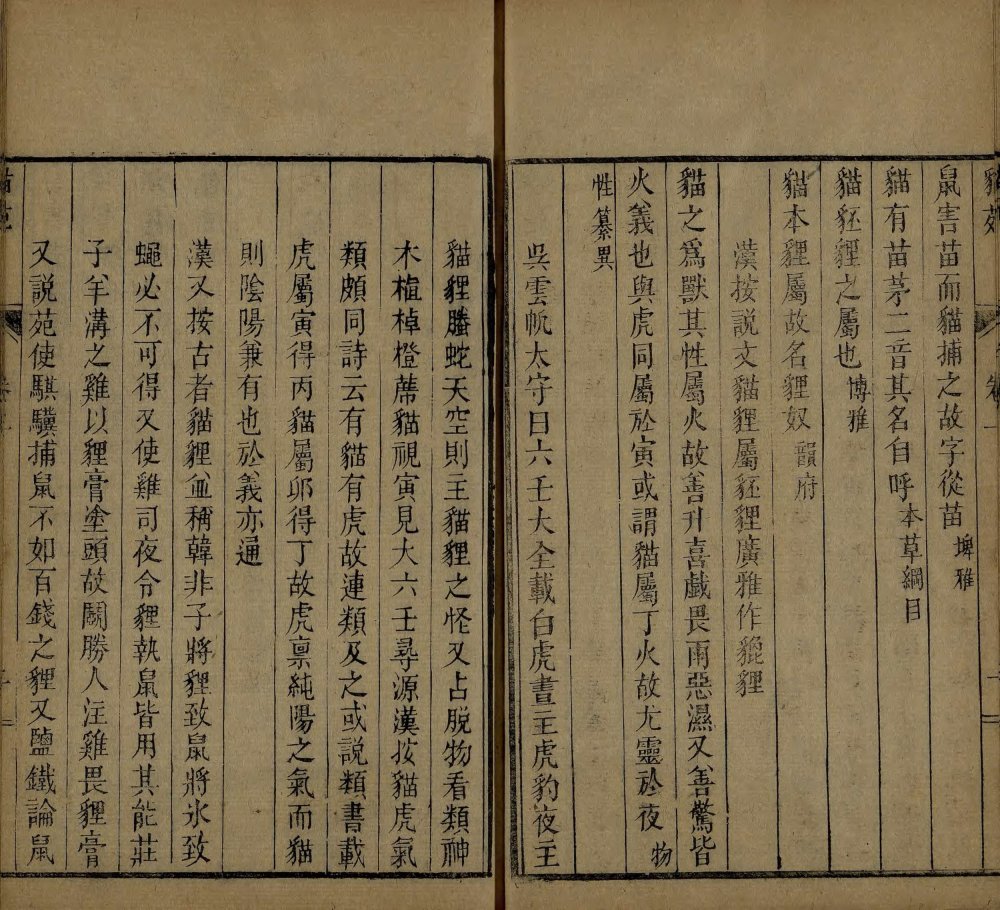 鼠害苗而貓捕之故字從苗 埤雅
貓有苗茅二音其名自呼 本草綱目
貓豾貍之屬也 博雅
貓本貍屬故名貍奴 韻府
漢按說文貓貍屬豾貍廣雅作貔貍
貓之爲獸其性屬火故善升喜戲畏雨惡濕又善驚皆
火義也與虎同屬於寅或謂貓屬丁火故尤靈於夜 物
性纂異
吳雲帆太守曰六壬大全載白虎晝主虎豹夜主
貓貍螣蛇天空則主貓貍之怪又占脫物看類神
木植棹橙蓆貓視寅見大六壬尋源漢按貓虎氣
類頗同詩云有貓有虎故連類及之或說類書載
虎屬寅得丙貓屬卯得丁故虎稟純陽之氣而貓
則陰陽兼有也於義亦通
漢又按古者貓貍並稱韓非子將貍致鼠將氷致
蠅必不可得又使雞司夜令貍執鼠皆用其能莊
子羊溝之雞以貍膏塗頭故鬭勝人注雞畏貍膏
又說苑使騏驥捕鼠不如百錢之貍又鹽鐵論鼠